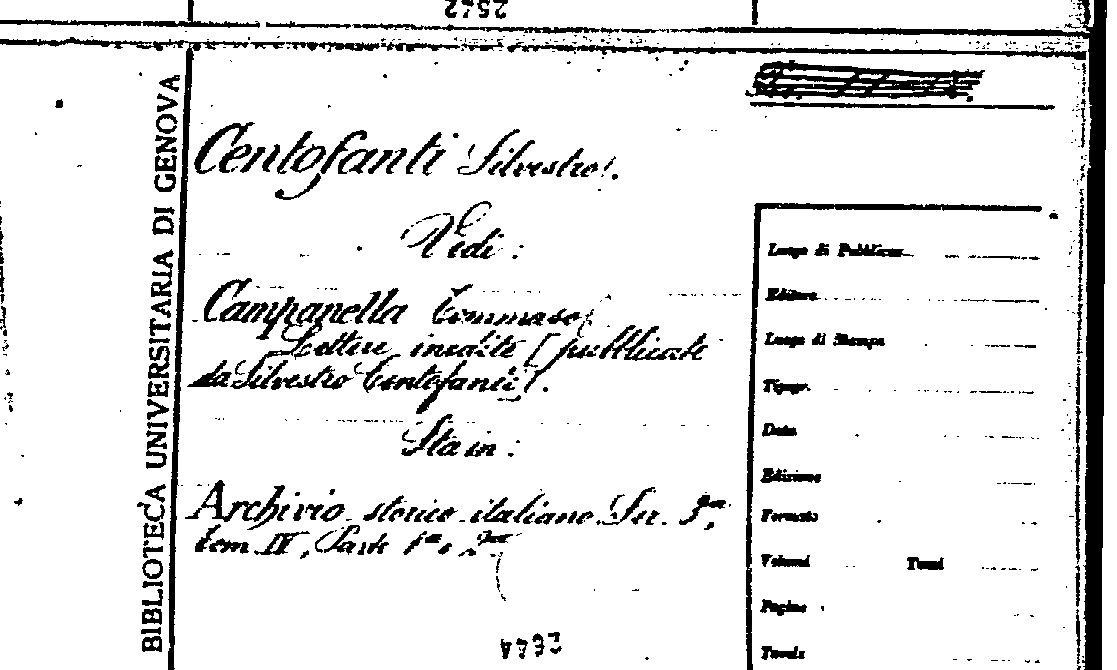 2542
BIBLIOTECA UNIVERSITARIA DI GENOVA
Centofanti Silvestro.
Vedi :
Campanella Tommaso
Lettere inedite [pubblicate
da Silvestro Centofanti].
Sta in :
Archivio storico italiano Ser. 3ª,
tom. IV, Parte 1ª e 2ª
2644
Luogo di Pubblicaz.
Editore
Luogo di Stampa
Tipogr.
Data
Edizione
Formato
Volumi Tomi
Pagine
Tavole